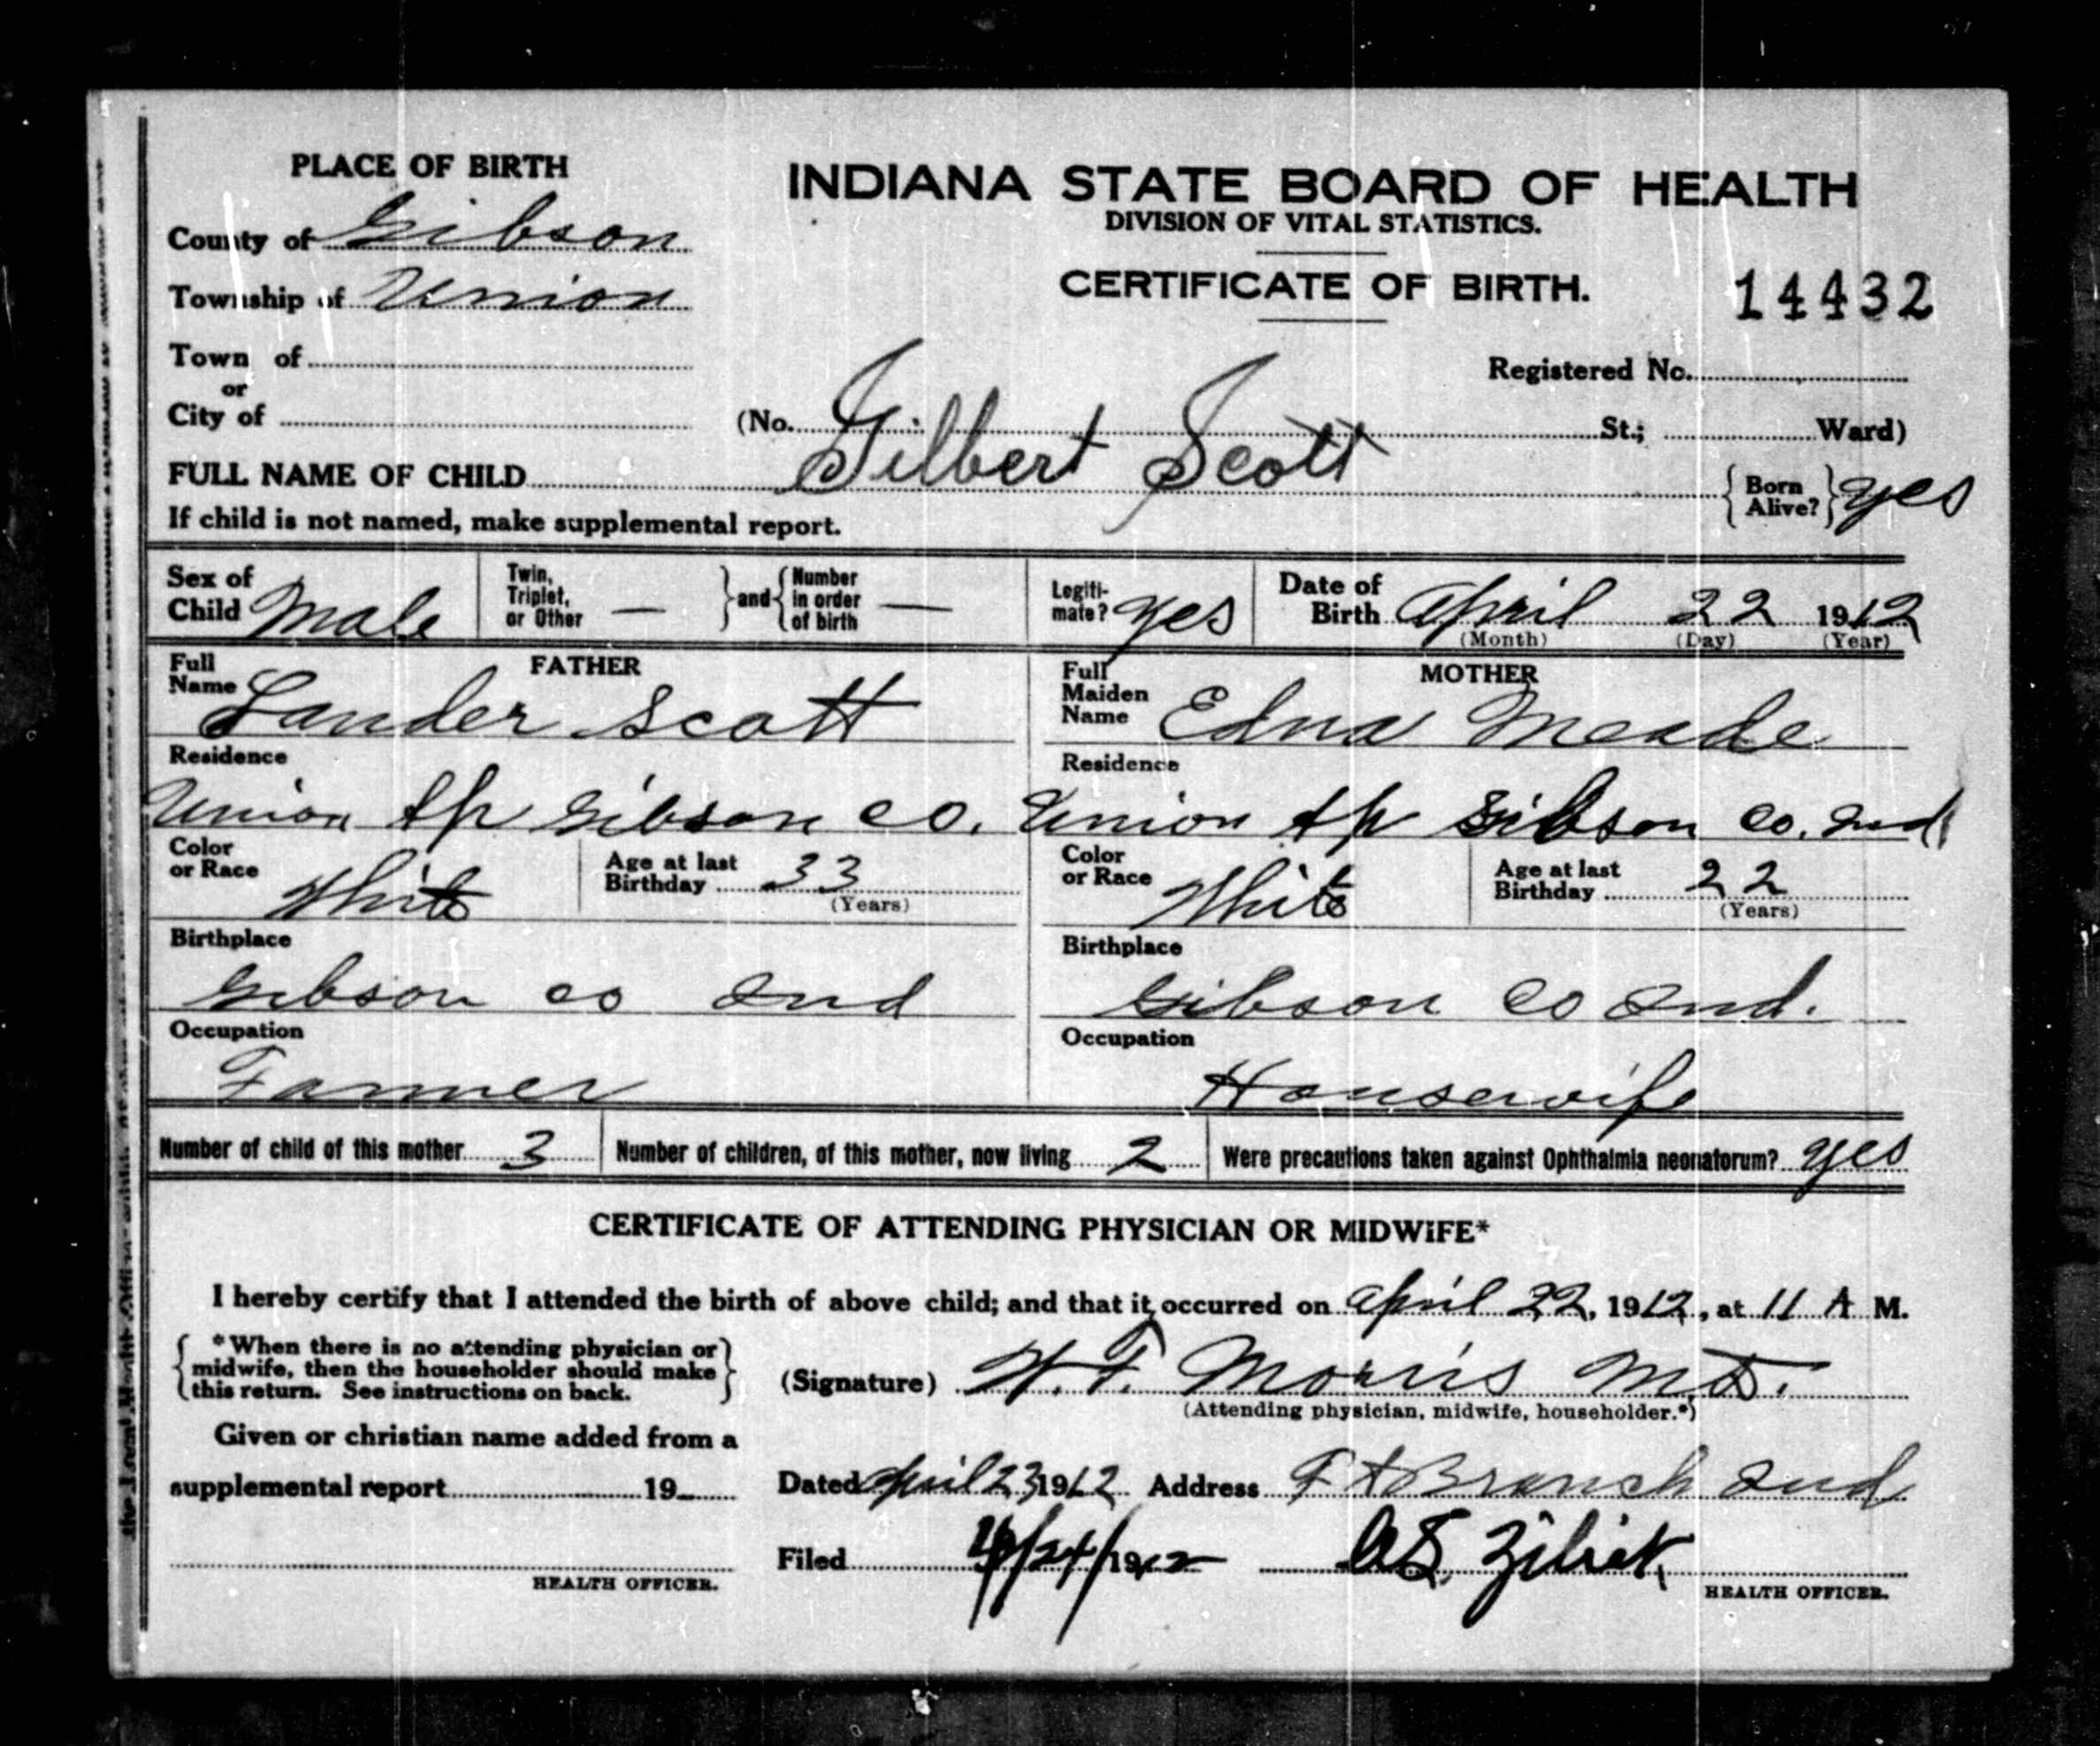 PLACE OF BIRTH
INDIANA STATE BOARD OF HEALTH
DIVISION OF VITAL STATISTICS.
County of Gibson
CERTIFICATE OF BIRTH.
14432
Township of Union
Town of
or
City of
Registered No.
(No. St.; Ward)
FULL NAME OF CHILD Gilbert Scott
Born Alive? yes
If child is not named, make supplemental report.
Sex of Child Male
Twin, Triplet, or Other — and Number in order of birth —
Legiti-mate? yes
Date of Birth April 22 1912
(Month) (Day) (Year)
FATHER
Full Name Lander Scott
MOTHER
Full Maiden Name Edna Meade
Residence
Union tp Gibson co.
Residence
Union tp Gibson co. Ind
Color or Race White
Age at last Birthday 33
(Years)
Color or Race White
Age at last Birthday 22
(Years)
Birthplace
Gibson co Ind
Birthplace
Gibson co Ind.
Occupation
Farmer
Occupation
Housewife
Number of child of this mother 3
Number of children, of this mother, now living 2
Were precautions taken against Ophthalmia neonatorum? yes
CERTIFICATE OF ATTENDING PHYSICIAN OR MIDWIFE*
I hereby certify that I attended the birth of above child; and that it occurred on April 22, 1912, at 11 A M.
*When there is no attending physician or
midwife, then the householder should make
this return. See instructions on back.
(Signature) W. F. Morris M.D.
(Attending physician, midwife, householder.*)
Given or christian name added from a
supplemental report 19
Dated April 23 1912 Address Ft Branch Ind
Filed 4/24/1912
HEALTH OFFICER.
HEALTH OFFICER.